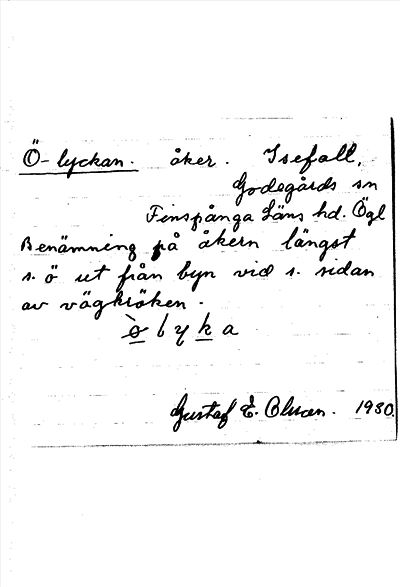 Ö-lyckan. åker. Isefall,
Godegårds sn
Finspånga Läns hd. Ögl
Benämning på åkern längst
s. ö ut från byn vid s. sidan
av vägkröken.
ò l y k a
Gustaf E. Olsson. 1930.